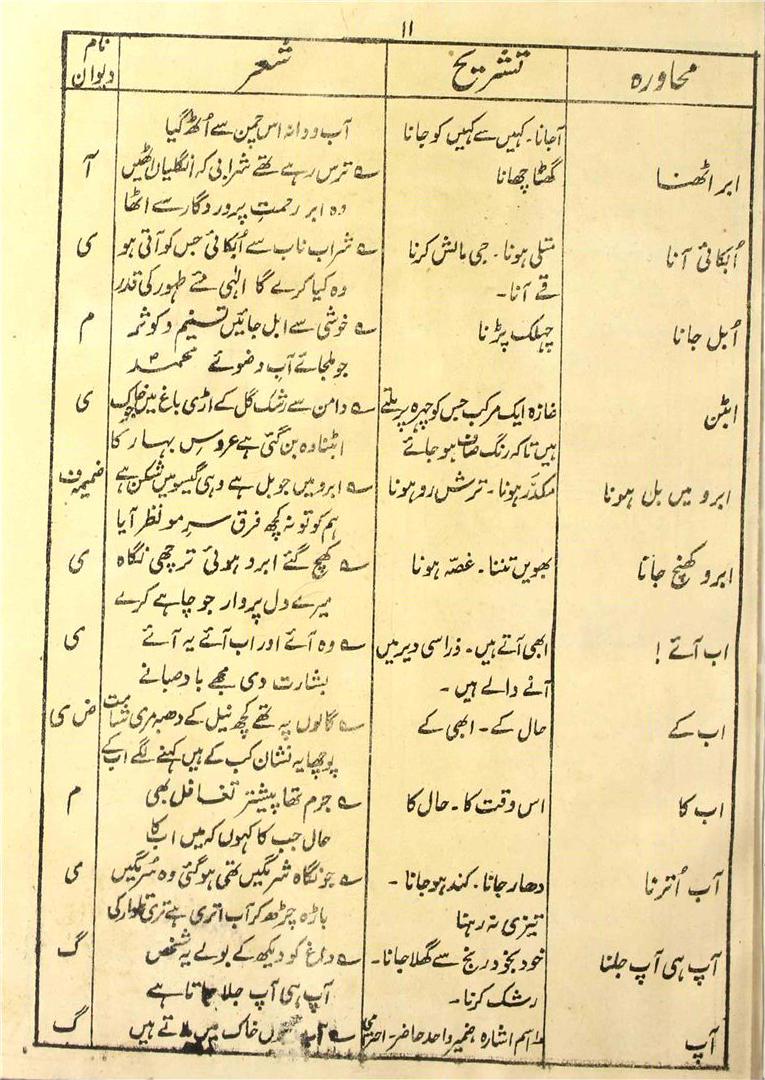 ۱۱
محاورہ تشریح شعر نام دیوان
آجانا۔ کہیں سے کہیں کو جانا آب و دانہ اس چمن سے اُٹھ گیا
ابر اٹھنا گھٹا چھانا ؎ ترس رہے تھے شرابی کہ انگلیاں اٹھیں آ
وہ ابر رحمتِ پروردگار سے اٹھا
اُبکائی آنا متلی ہونا۔ جی مالش کرنا ؎ شراب ناب سے اُبکائی جس کو آتی ہو ی
قے آنا۔ وہ کیا کرے گا الٰہی مئے طہور کی قدر
اُبل جانا چہلک پڑنا ؎ خوشی سے ابل جائیں تسنیم و کوثر م
جو ملجائے آب وضوئے محمد
ابٹن غازہ ایک مرکب جس کو چہرہ پر ملتے ؎ دامن سے رشک گل کے اڑی باغ میں جو خاک ی
ہیں تاکہ رنگ صاف ہو جائے ابٹنا وہ بن گئی ہے عروسِ بہار کا
ابرو میں بل ہونا مکدّر ہونا۔ ترش رو ہونا ؎ ابرو میں جو بل ہے وہی گیسو میں شکن ہے ضمیمہ ف
ہم کو تو نہ کچھ فرق سرِ مو نظر آیا
ابرو کھنچ جانا بھویں تننا۔ غصّہ ہونا ؎ کھچ گئے ابرو ہوئی ترچھی نگاہ ی
میرے دل پر وار جو چاہے کرے
اب آئے ! ابھی آتے ہیں۔ ذرا سی دیر میں ؎ وہ آئے اور اب آئے یہ آئے ی
آنے والے ہیں۔ بشارت دی مجھے باد صبا نے
اب کے حال کے۔ ابھی کے ؎ گالوں پہ تھے کچھ نیل کے دھبے مری شامت ض ی
پوچھا یہ نشان کب کے ہیں کہنے لگے اب کے
اب کا اس وقت کا۔ حال کا ؎ جرم تھا پیشتر تغافل بھی م
حال جب کا کہوں کہ میں اب کا
آب اُترنا دھار جانا۔ کند ہو جانا۔ ؎ جو نگاہ شرمگیں تھی ہو گئی وہ سُرمگیں ی
تیزی نہ رہنا باڑہ چڑھ کر آب اتری ہے تری تلوار کی
آپ ہی آپ جلنا خود بخود رنج سے گھلا جانا۔ ؎ داغ کو دیکھ کے بولے یہ شخص گ
رشک کرنا۔ آپ ہی آپ جلا جاتا ہے
آپ اسم اشارہ ضمیر واحد حاضر۔ ؎ آپ خاک میں ملاتے ہیں گ